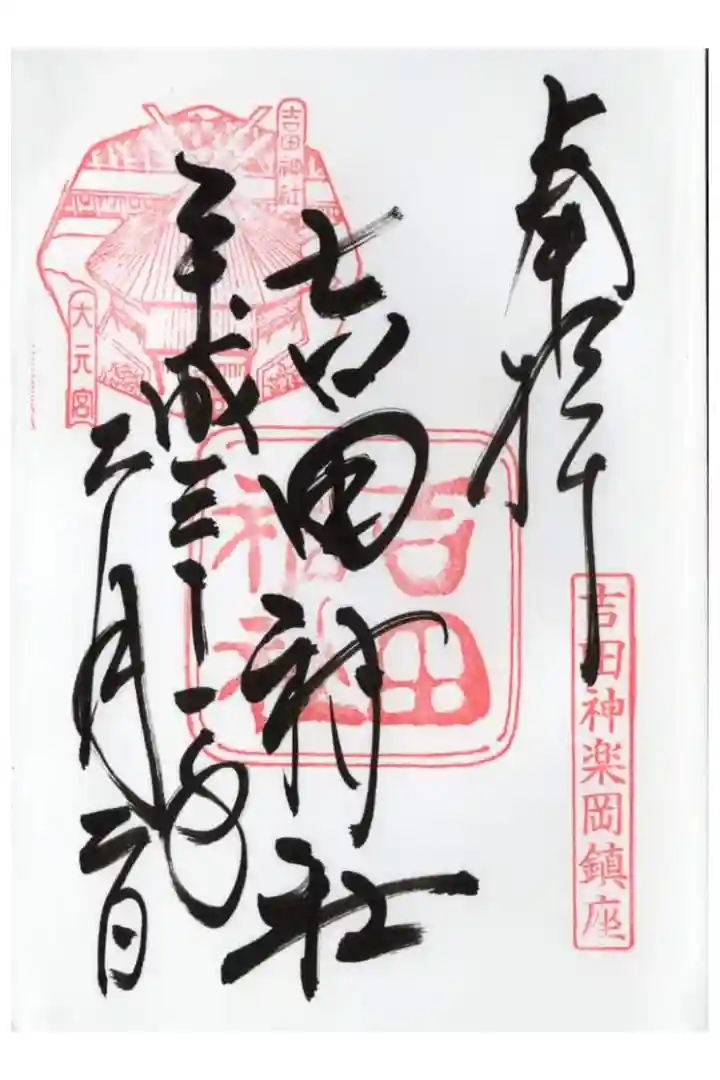 奉拝
吉田神楽岡鎮座
吉田神社
吉田神社
平成三十一年
二月二日
吉田神社
大元宮